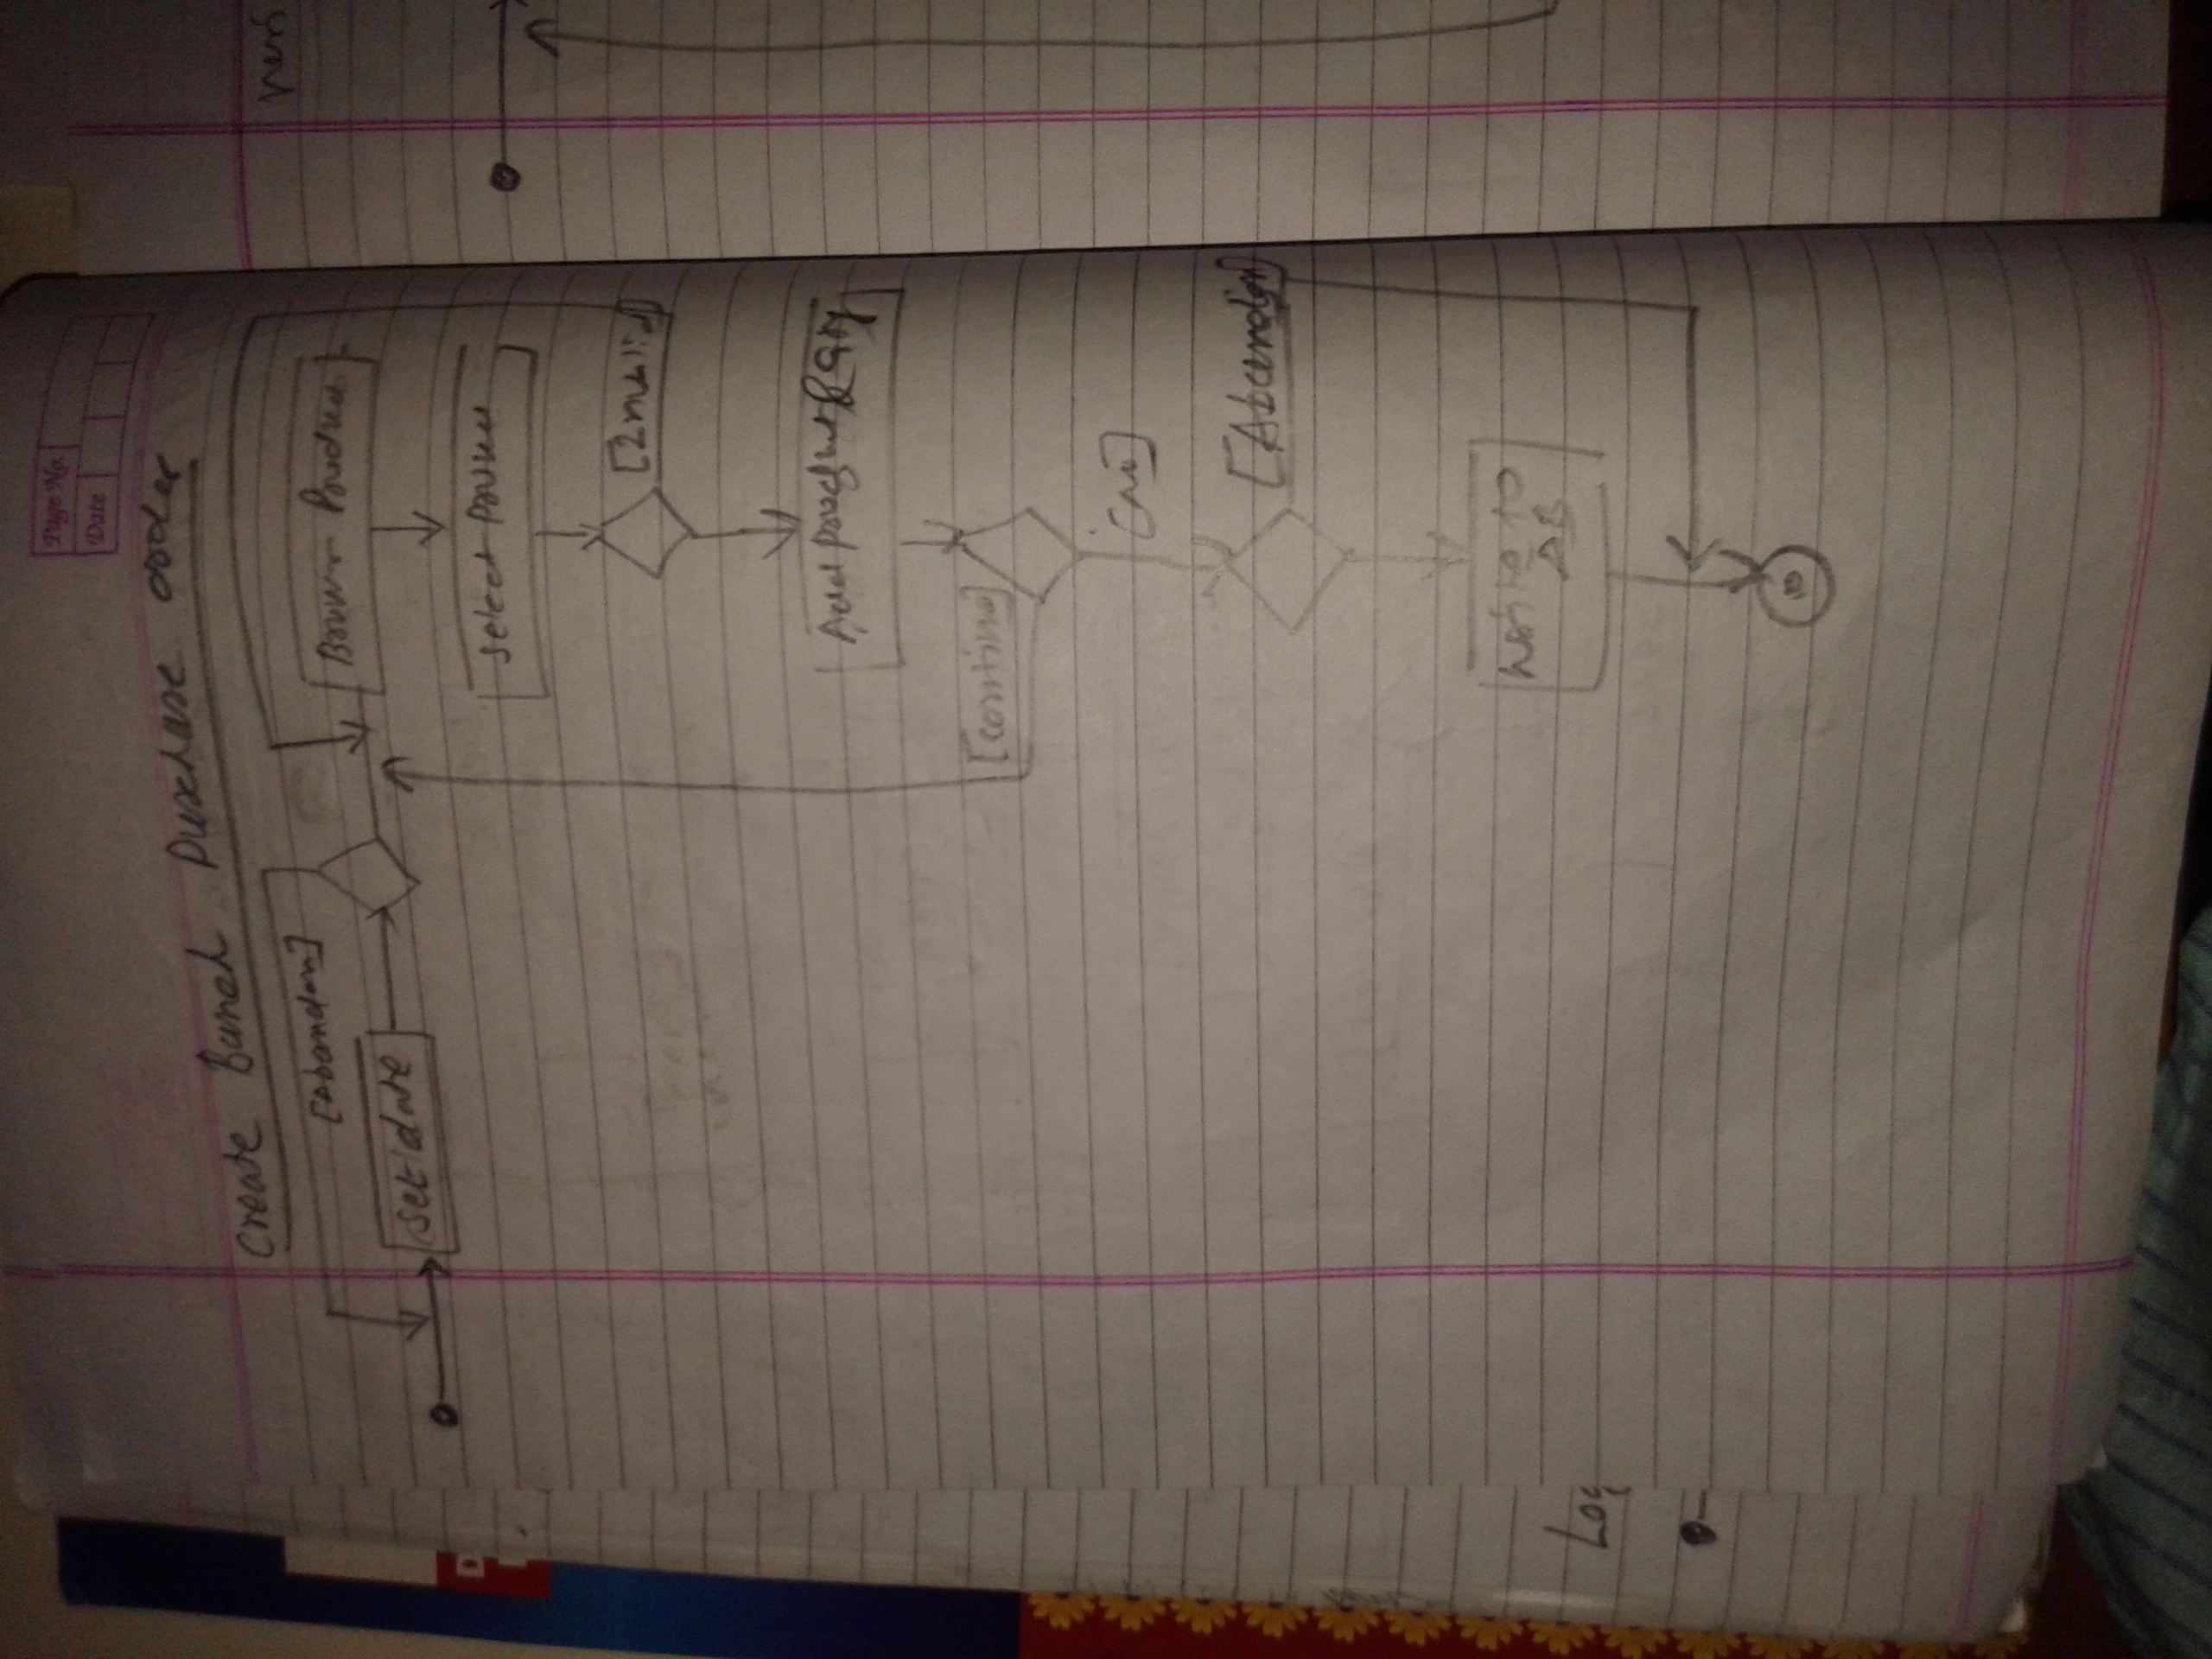 Page No.
Date
Create Bunch Purchase order
[Abandon]
set date
Browse Product
Select Product
[Invalid]
Add product & Qty
[continue]
[no]
[Abandon]
write to
DB
Log
D